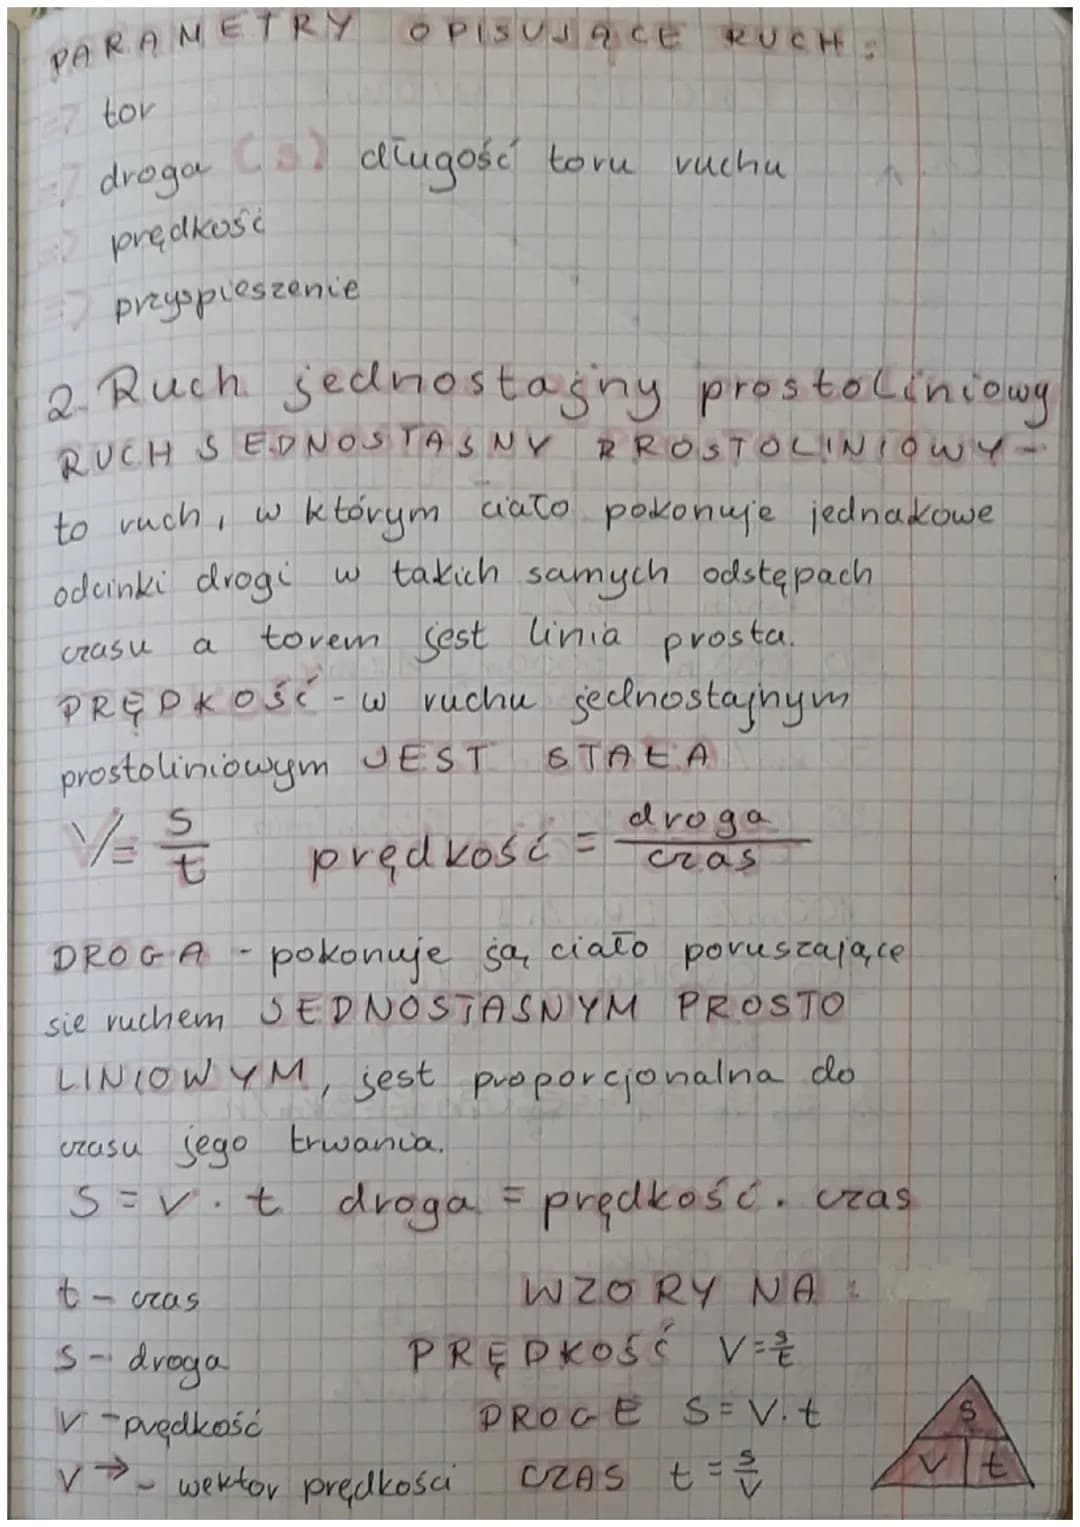 PARAMETRY OPISUJĄCE RUCH:
=> tor
=> droga (s) długość toru ruchu
=> prędkość
=> przyspieszenie
2. Ruch jednostajny prostoliniowy
RUCH JEDNOSTAJNY PROSTOLINIOWY -
to ruch, w którym ciało pokonuje jednakowe
odcinki drogi w takich samych odstępach
czasu a torem jest linia prosta.
PRĘDKOŚĆ - w ruchu jednostajnym
prostoliniowym JEST STAŁA
V = s/t prędkość = droga/czas
DROGA - pokonuje ją ciało poruszające
sie ruchem JEDNOSTAJNYM PROSTO
LINIOWYM, jest proporcjonalna do
czasu jego trwania.
S = V · t droga = prędkość · czas
t - czas WZORY NA:
s - droga PRĘDKOŚĆ V = s/t
V - prędkość DROGE S = V · t
V → - wektor prędkości CZAS t = s/V
s
V t